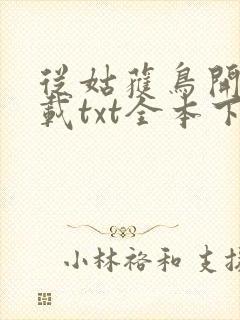 從姑蒦鳥開
載txt全本下
小林裕和 支援